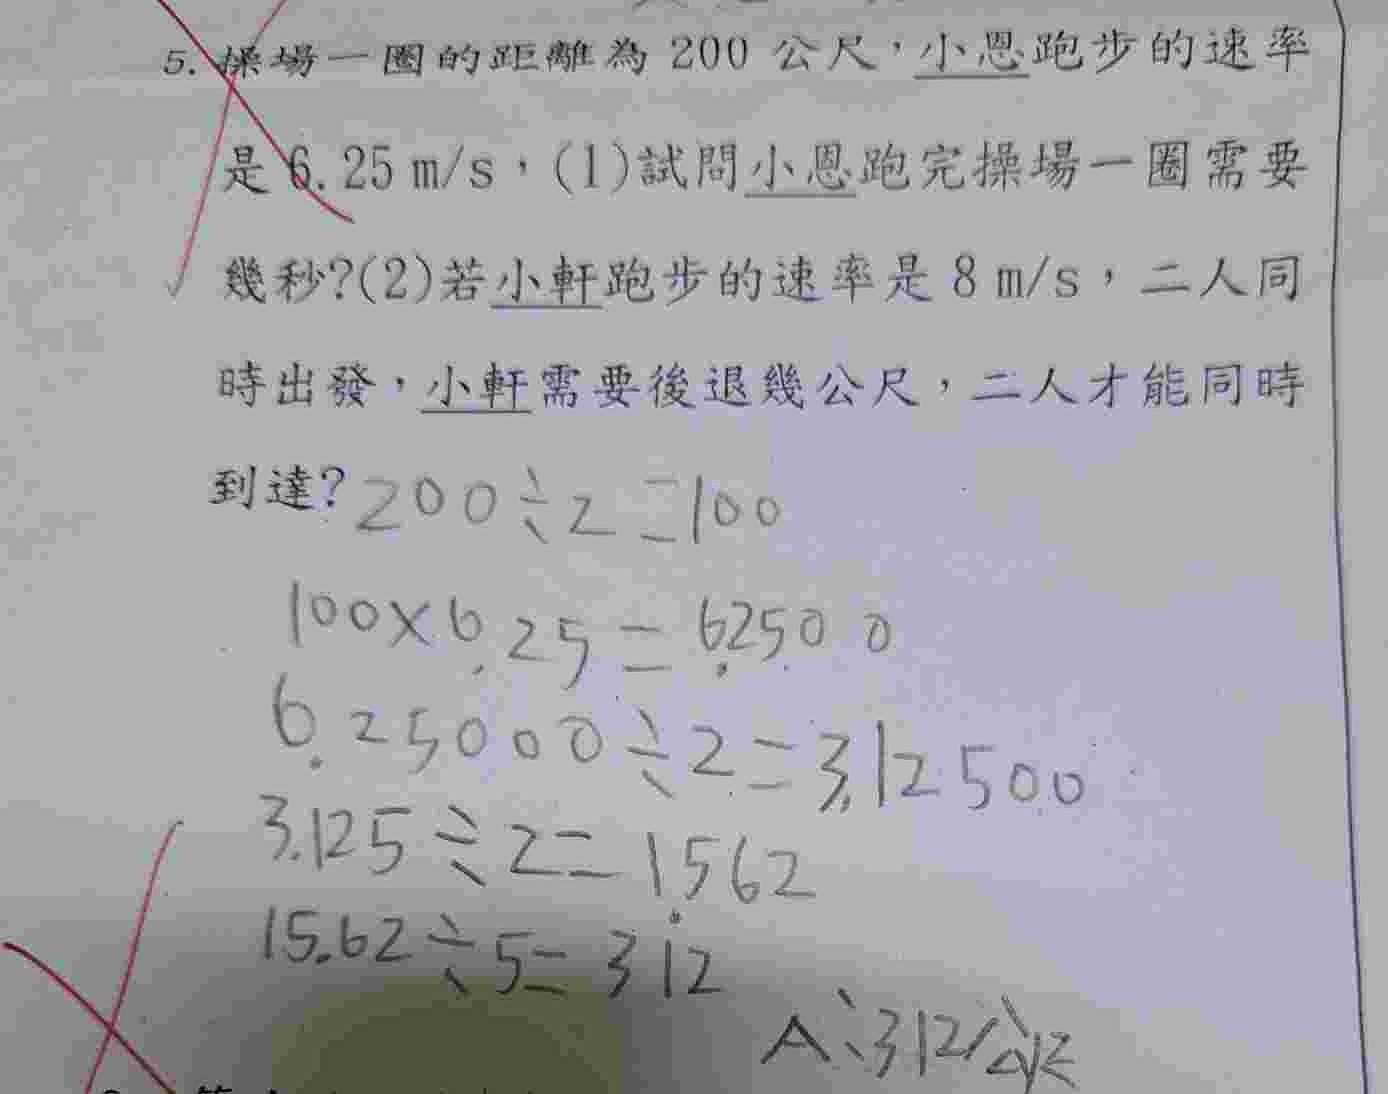 5. 操場一圈的距離為 200 公尺，小恩跑步的速率
是 6.25 m/s，(1)試問小恩跑完操場一圈需要
幾秒?(2)若小軒跑步的速率是 8 m/s，二人同
時出發，小軒需要後退幾公尺，二人才能同時
到達?
200÷2=100
100×6.25=6.2500
6.25000÷2=3.12500
3.125÷2=1562
15.62÷5=312
A：312公尺